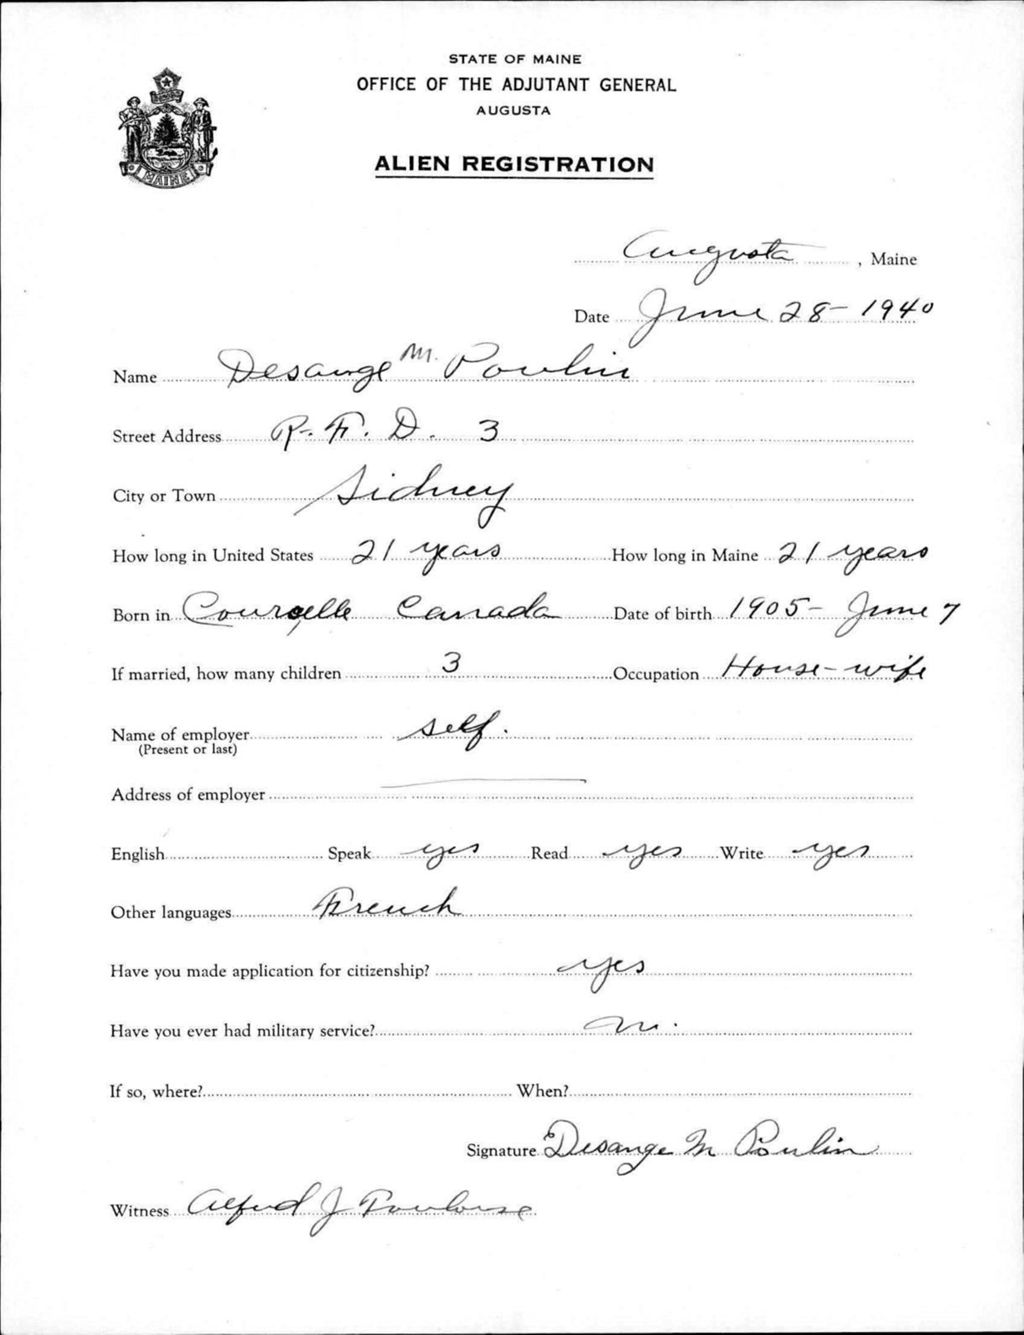 STATE OF MAINE
OFFICE OF THE ADJUTANT GENERAL
AUGUSTA
ALIEN REGISTRATION
MAINE
Augusta, Maine
Date June 28-1940
Name Desange M. Poulin
Street Address R. F. D. 3
City or Town Sidney
How long in United States 21 years How long in Maine 21 years
Born in Courcelle Canada Date of birth 1905- June 7
If married, how many children 3 Occupation House-wife
Name of employer self.
(Present or last)
Address of employer
English Speak yes Read yes Write yes
Other languages French
Have you made application for citizenship? yes
Have you ever had military service? no.
If so, where? When?
Signature Desange M Poulin
Witness Alfred J Toulouse